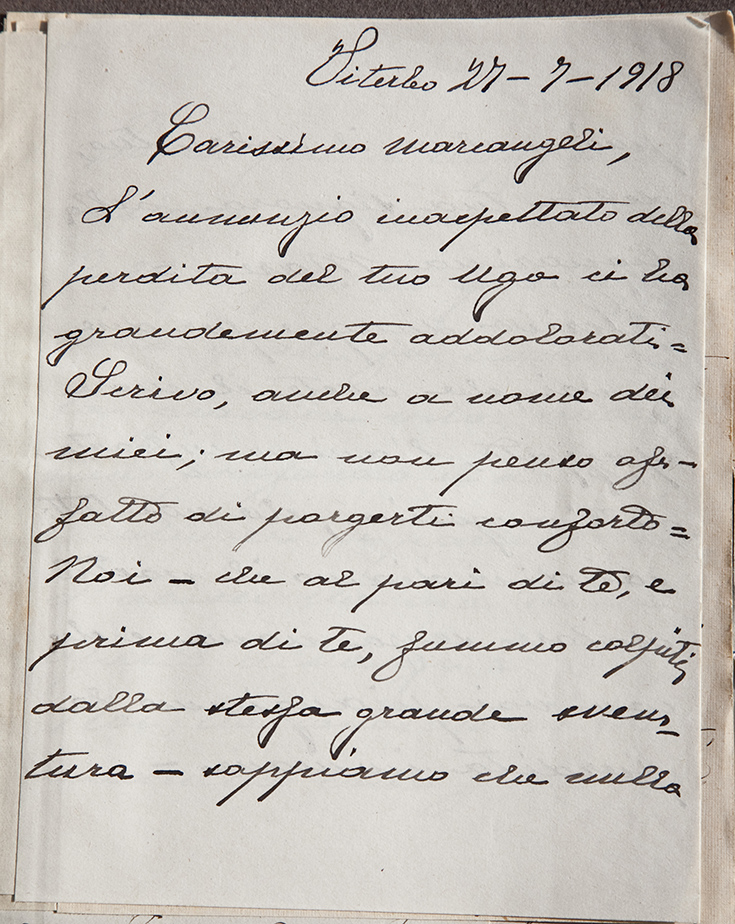 Viterbo 27 – 7 – 1918
Carissimo Marcangeli,
L'annunzio inaspettato della
perdita del tuo Ugo ci ha
grandemente addolorati =
Scrivo, anche a nome dei
miei; ma non penso af-
fatto di porgerti conforto =
Noi – che al pari di te, e
prima di te, fummo colpiti
dalla stessa grande sven-
tura – sappiamo che nulla